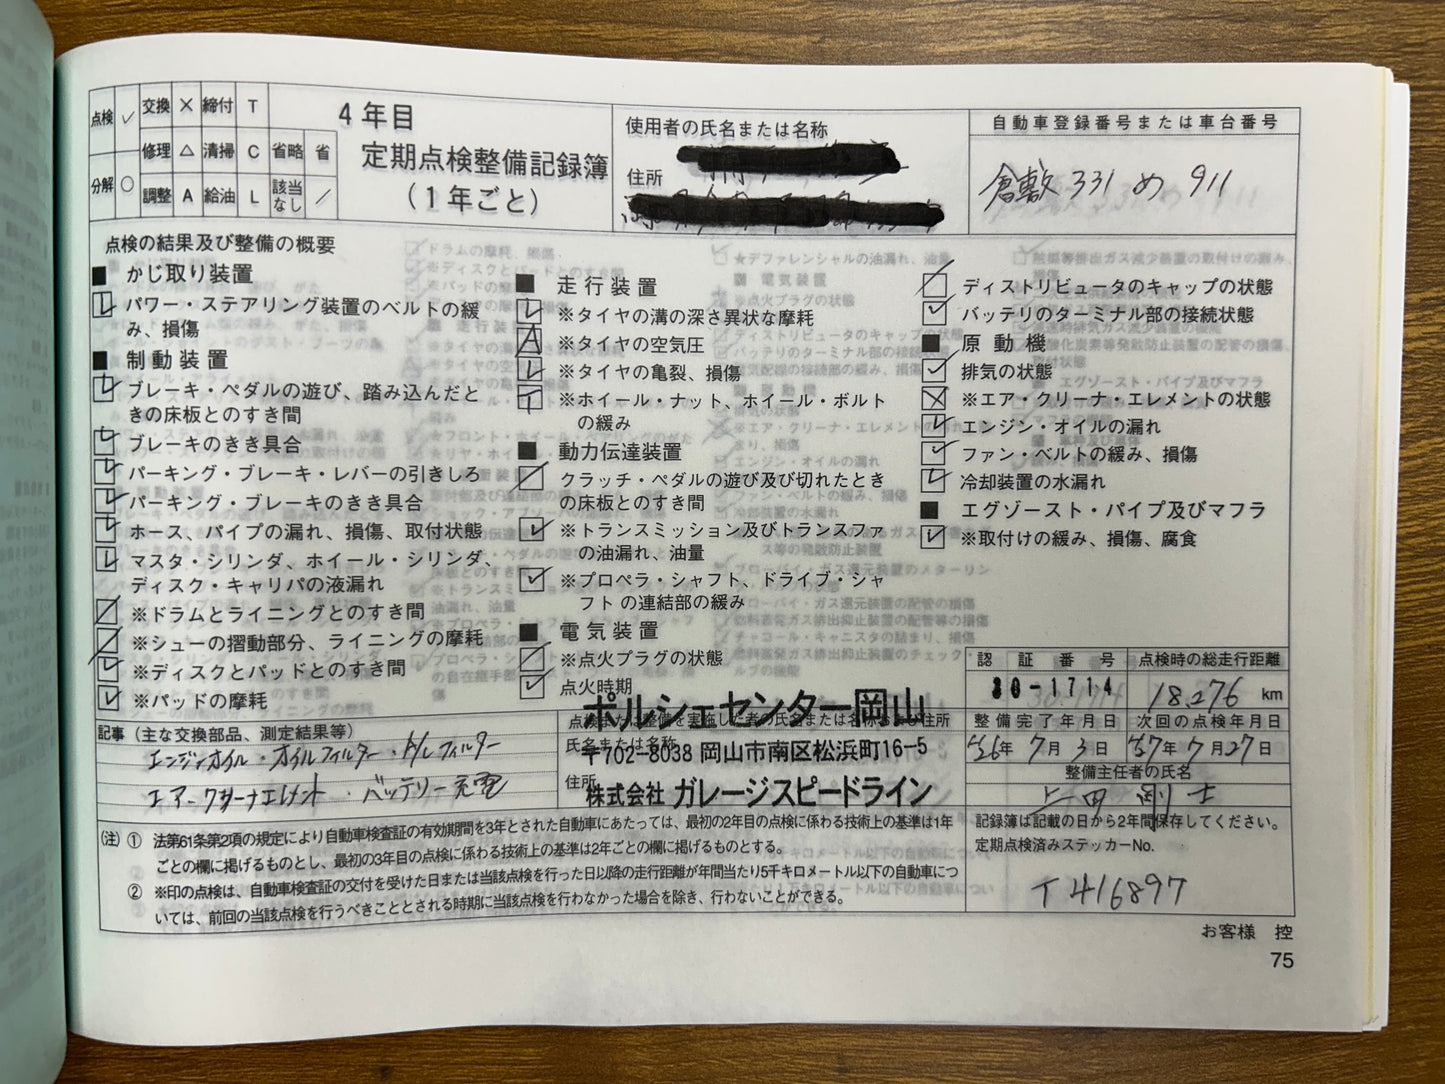 点検 ✓ 交換 × 締付 T
修理 △ 清掃 C 省略 省
分解 ○ 調整 A 給油 L 該当なし ／
4年目
定期点検整備記録簿
（1年ごと）
使用者の氏名または名称
住所
自動車登録番号または車台番号
倉敷 331 め 911
点検の結果及び整備の概要
■ かじ取り装置
パワー・ステアリング装置のベルトの緩
み、損傷
■ 制動装置
ブレーキ・ペダルの遊び、踏み込んだと
きの床板とのすき間
ブレーキのきき具合
パーキング・ブレーキ・レバーの引きしろ
パーキング・ブレーキのきき具合
ホース、パイプの漏れ、損傷、取付状態
マスタ・シリンダ、ホイール・シリンダ、
ディスク・キャリパの液漏れ
※ドラムとライニングとのすき間
※シューの摺動部分、ライニングの摩耗
※ディスクとパッドとのすき間
※パッドの摩耗
■ 走行装置
※タイヤの溝の深さ異状な摩耗
※タイヤの空気圧
※タイヤの亀裂、損傷
※ホイール・ナット、ホイール・ボルト
の緩み
■ 動力伝達装置
クラッチ・ペダルの遊び及び切れたとき
の床板とのすき間
※トランスミッション及びトランスファ
の油漏れ、油量
※プロペラ・シャフト、ドライブ・シャ
フトの連結部の緩み
■ 電気装置
※点火プラグの状態
点火時期
ディストリビュータのキャップの状態
バッテリのターミナル部の接続状態
■ 原動機
排気の状態
※エア・クリーナ・エレメントの状態
エンジン・オイルの漏れ
ファン・ベルトの緩み、損傷
冷却装置の水漏れ
■ エグゾースト・パイプ及びマフラ
※取付けの緩み、損傷、腐食
認証番号
30-1714
点検時の総走行距離
18,276 km
整備完了年月日
次回の点検年月日
26年 7月 3日
27年 7月 27日
整備主任者の氏名
上田 剛士
記事（主な交換部品、測定結果等）
エンジンオイル・オイルフィルター・
エアークリーナエレメント・バッテリー充電
点検または整備を実施した者の氏名または名称および住所
氏名または名称
住所
ポルシェセンター岡山
〒702-8038 岡山市南区松浜町16-5
株式会社 ガレージスピードライン
記録簿は記載の日から2年間保存してください。
定期点検済みステッカーNo.
T 416897
（注）① 法第61条第2項の規定により自動車検査証の有効期間を3年とされた自動車にあたっては、最初の2年目の点検に係わる技術上の基準は1年
ごとの欄に掲げるものとし、最初の3年目の点検に係わる技術上の基準は2年ごとの欄に掲げるものとする。
② ※印の点検は、自動車検査証の交付を受けた日または当該点検を行った日以降の走行距離が年間当たり5千キロメートル以下の自動車につ
いては、前回の当該点検を行うべきこととされる時期に当該点検を行わなかった場合を除き、行わないことができる。
お客様 控
75